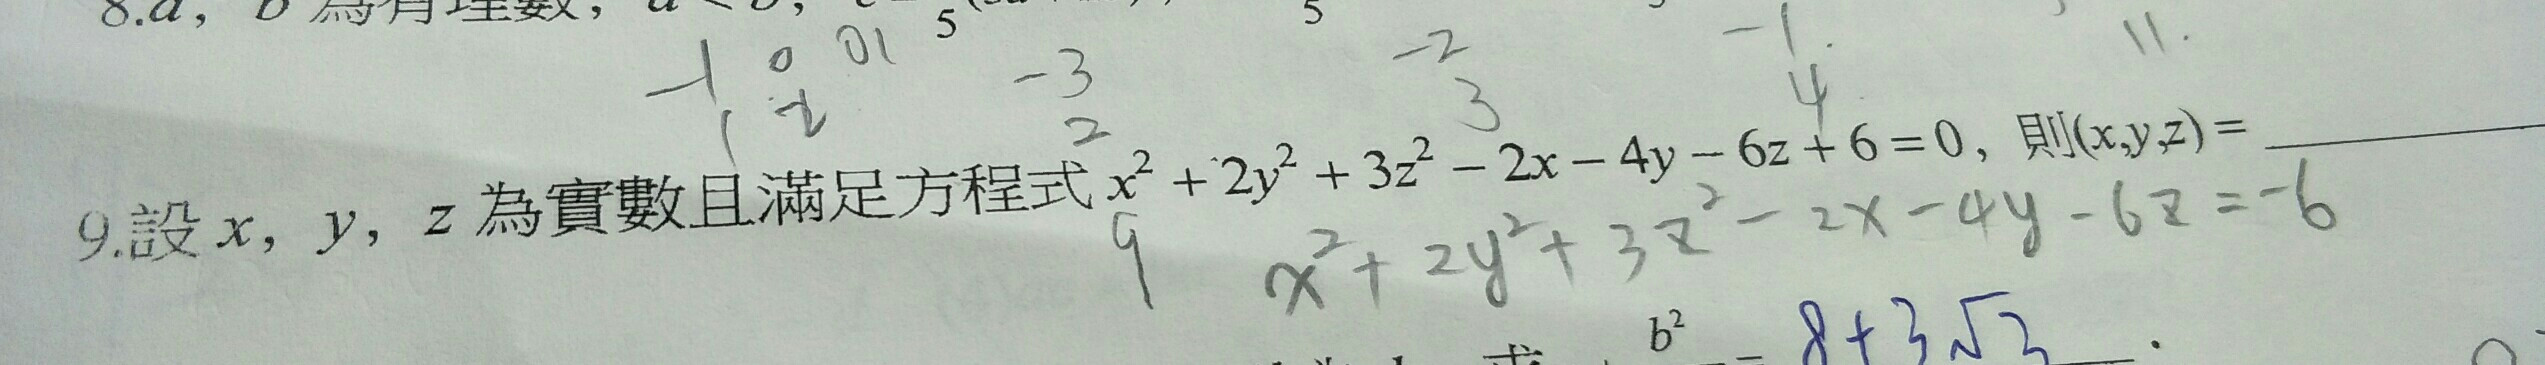 8.a, b 為有理數, a < b,
5
5
-1 0 01 -3 -2 -1. 11.
1 2 3 4
9.設 x, y, z 為實數且滿足方程式 x² + 2y² + 3z² - 2x - 4y - 6z + 6 = 0, 則(x,y,z) =
9 x² + 2y² + 3z² - 2x - 4y - 6z = -6
求 b² = 8+3√3